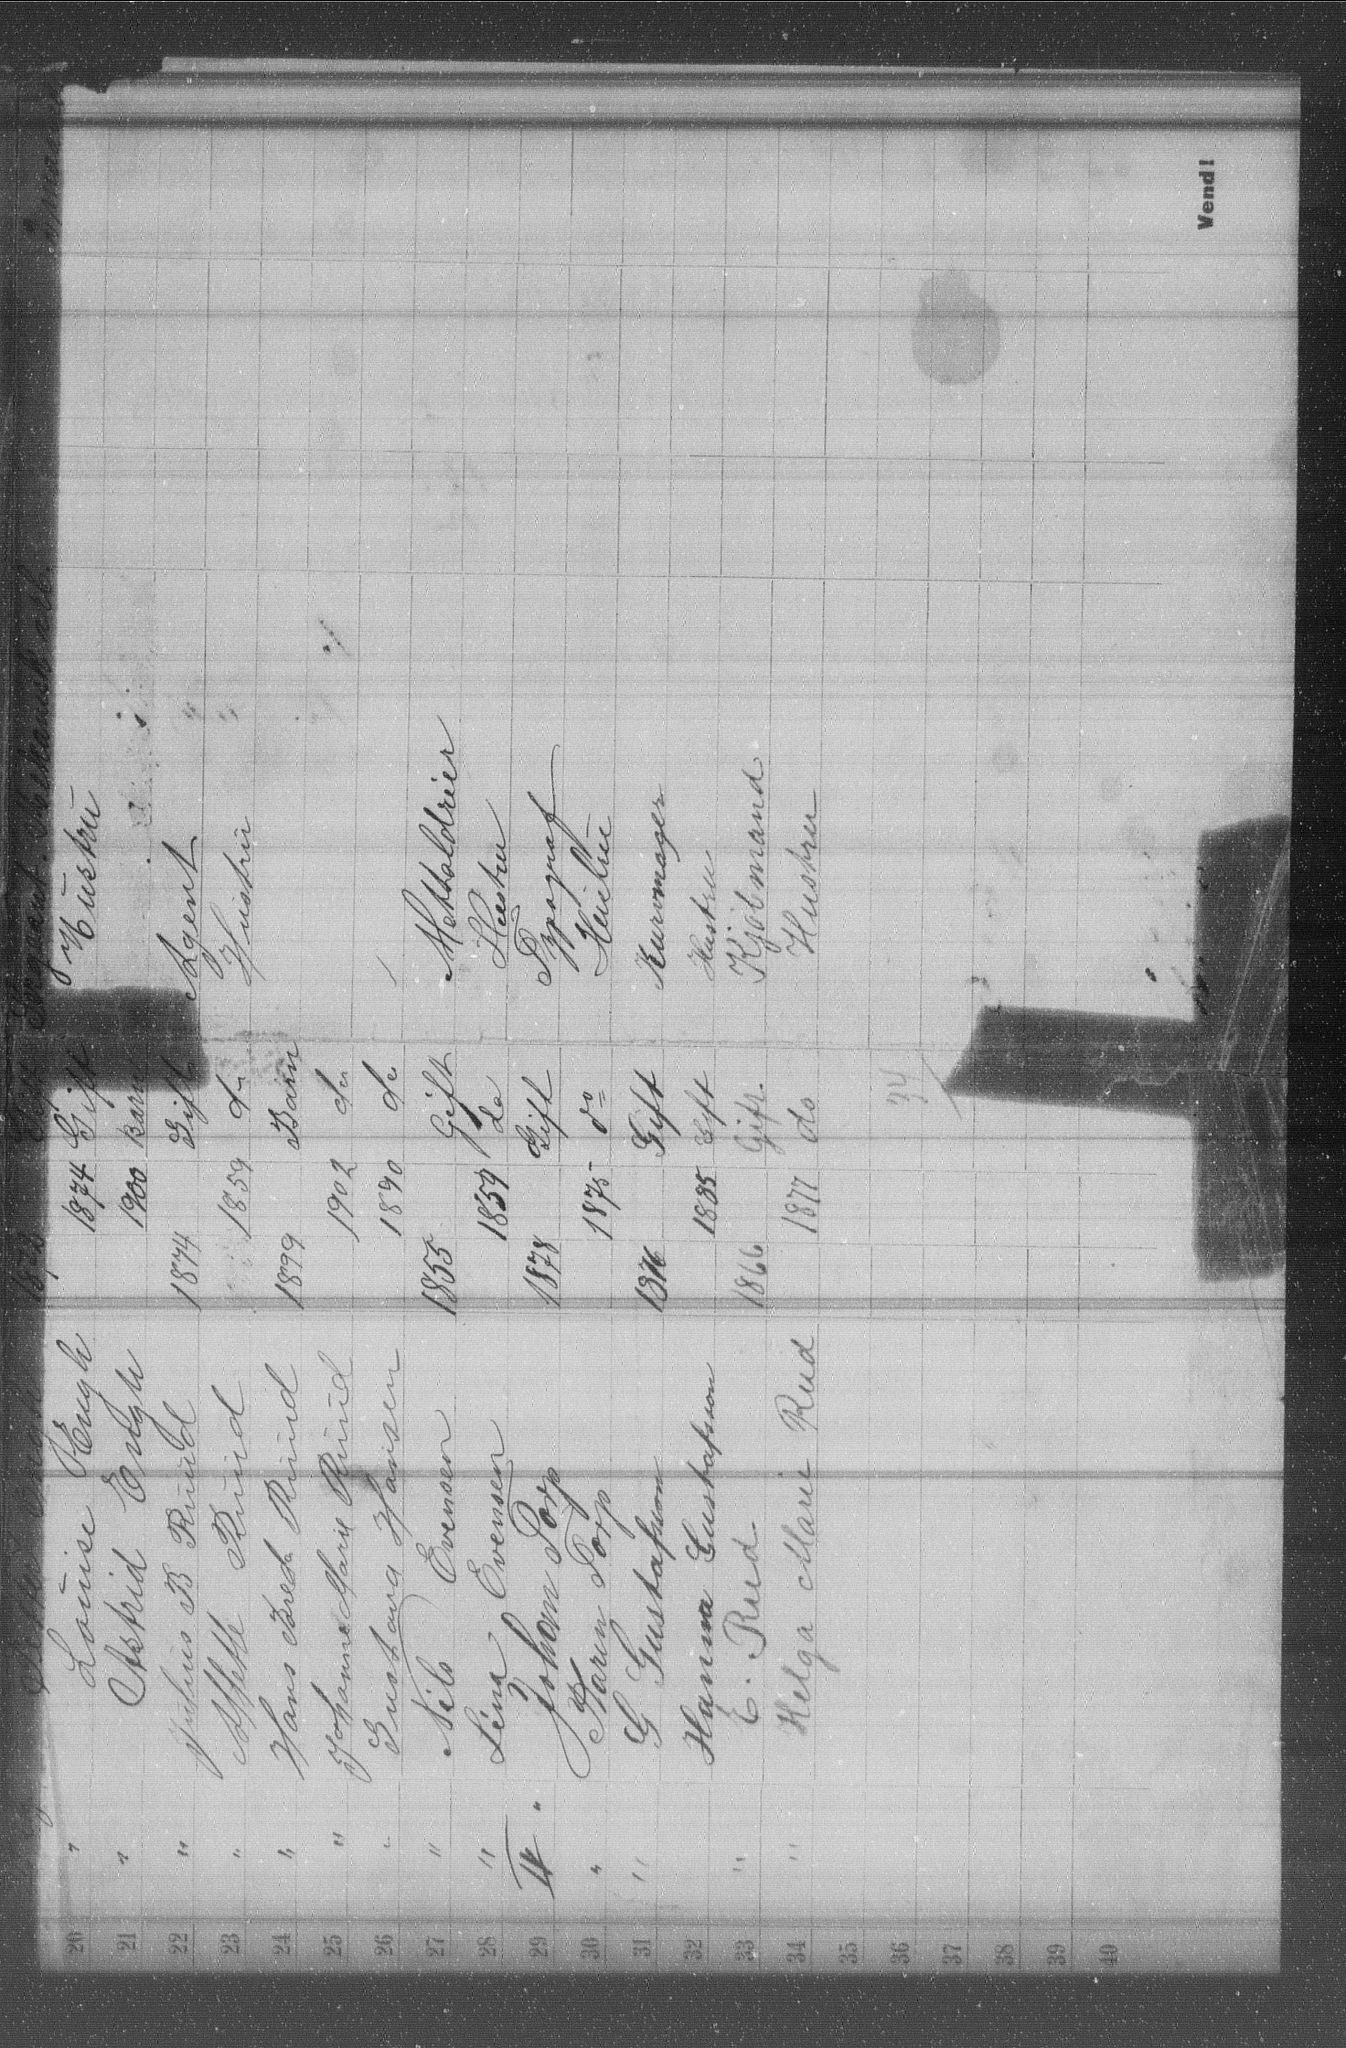 20 " Louise Engh 1874 Gift Hustru
21 " Astrid Engh 1900 Barn
22 " Julius B Ruud 1874 Gift Agent
23 " Ruud 1859 do Hustru
24 " Hans Fred Ruud 1899 Barn
25 " Johanne Marie Ruud 1902 do
26 " Gustava Hansen 1890 do
27 " Nils Evensen 1855 Gift
28 " Lina Evensen 1859 do Hustru
29 IV " Johan Torp 1878 Gift Typograf
30 " Karen Torp 1875 do Hustru
31 " G Gustafsson 1876 Gift Kurvmager
32 Hanna Gustafsson 1885 Gift Hustru
33 " E. Rud 1866 Gift. Kjøbmand
34 " Helga Marie Rud 1877 do Hustru
35
36 34
37
38
39
40
Wend!